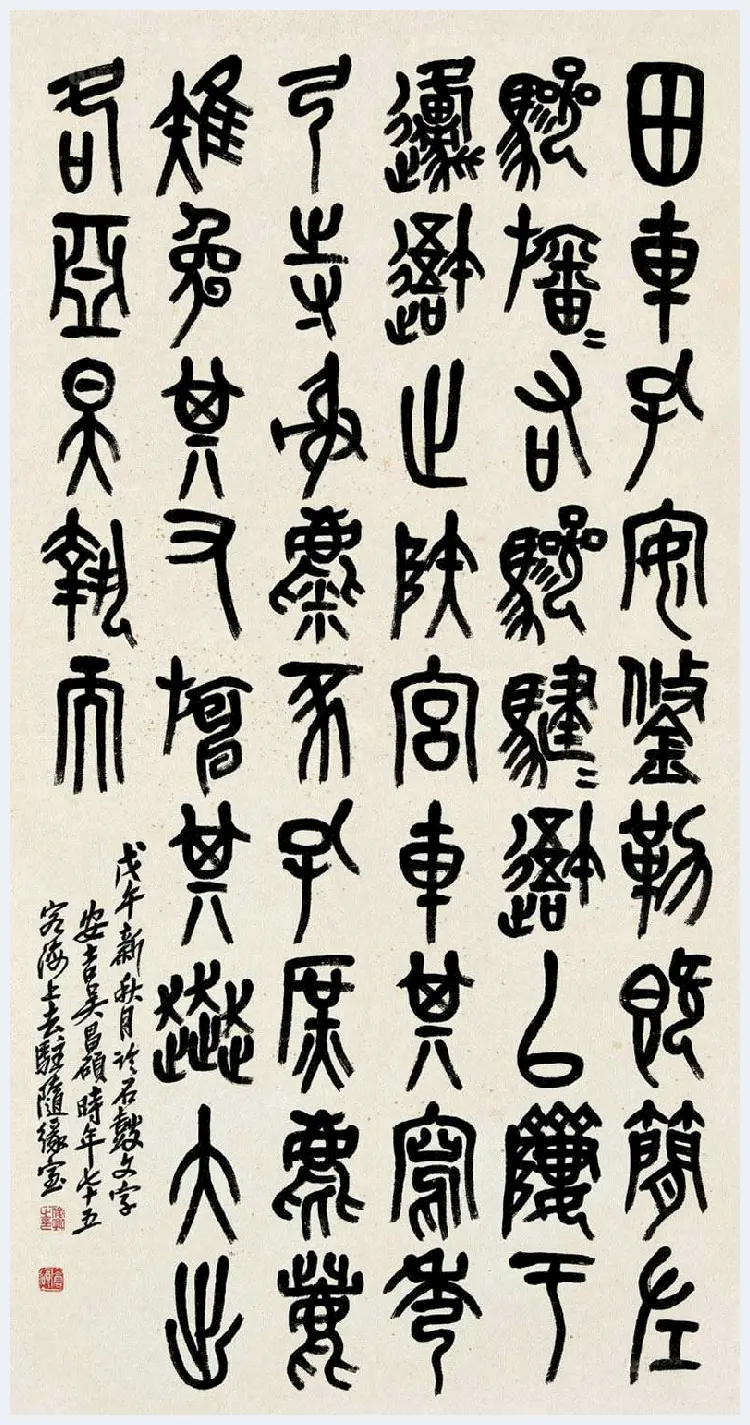 田車孔安鋚勒既簡左
驂旛=右驂騝=避以隮于
邍避止陝宮車其寫秀
弓寺射麋豕孔庶麀鹿
雉兔其又旃其奔大出
各亞昊執而
戊午新秋月臨石鼓文字
安吉吳昌碩時年七十五
客海上去駐隨緣室